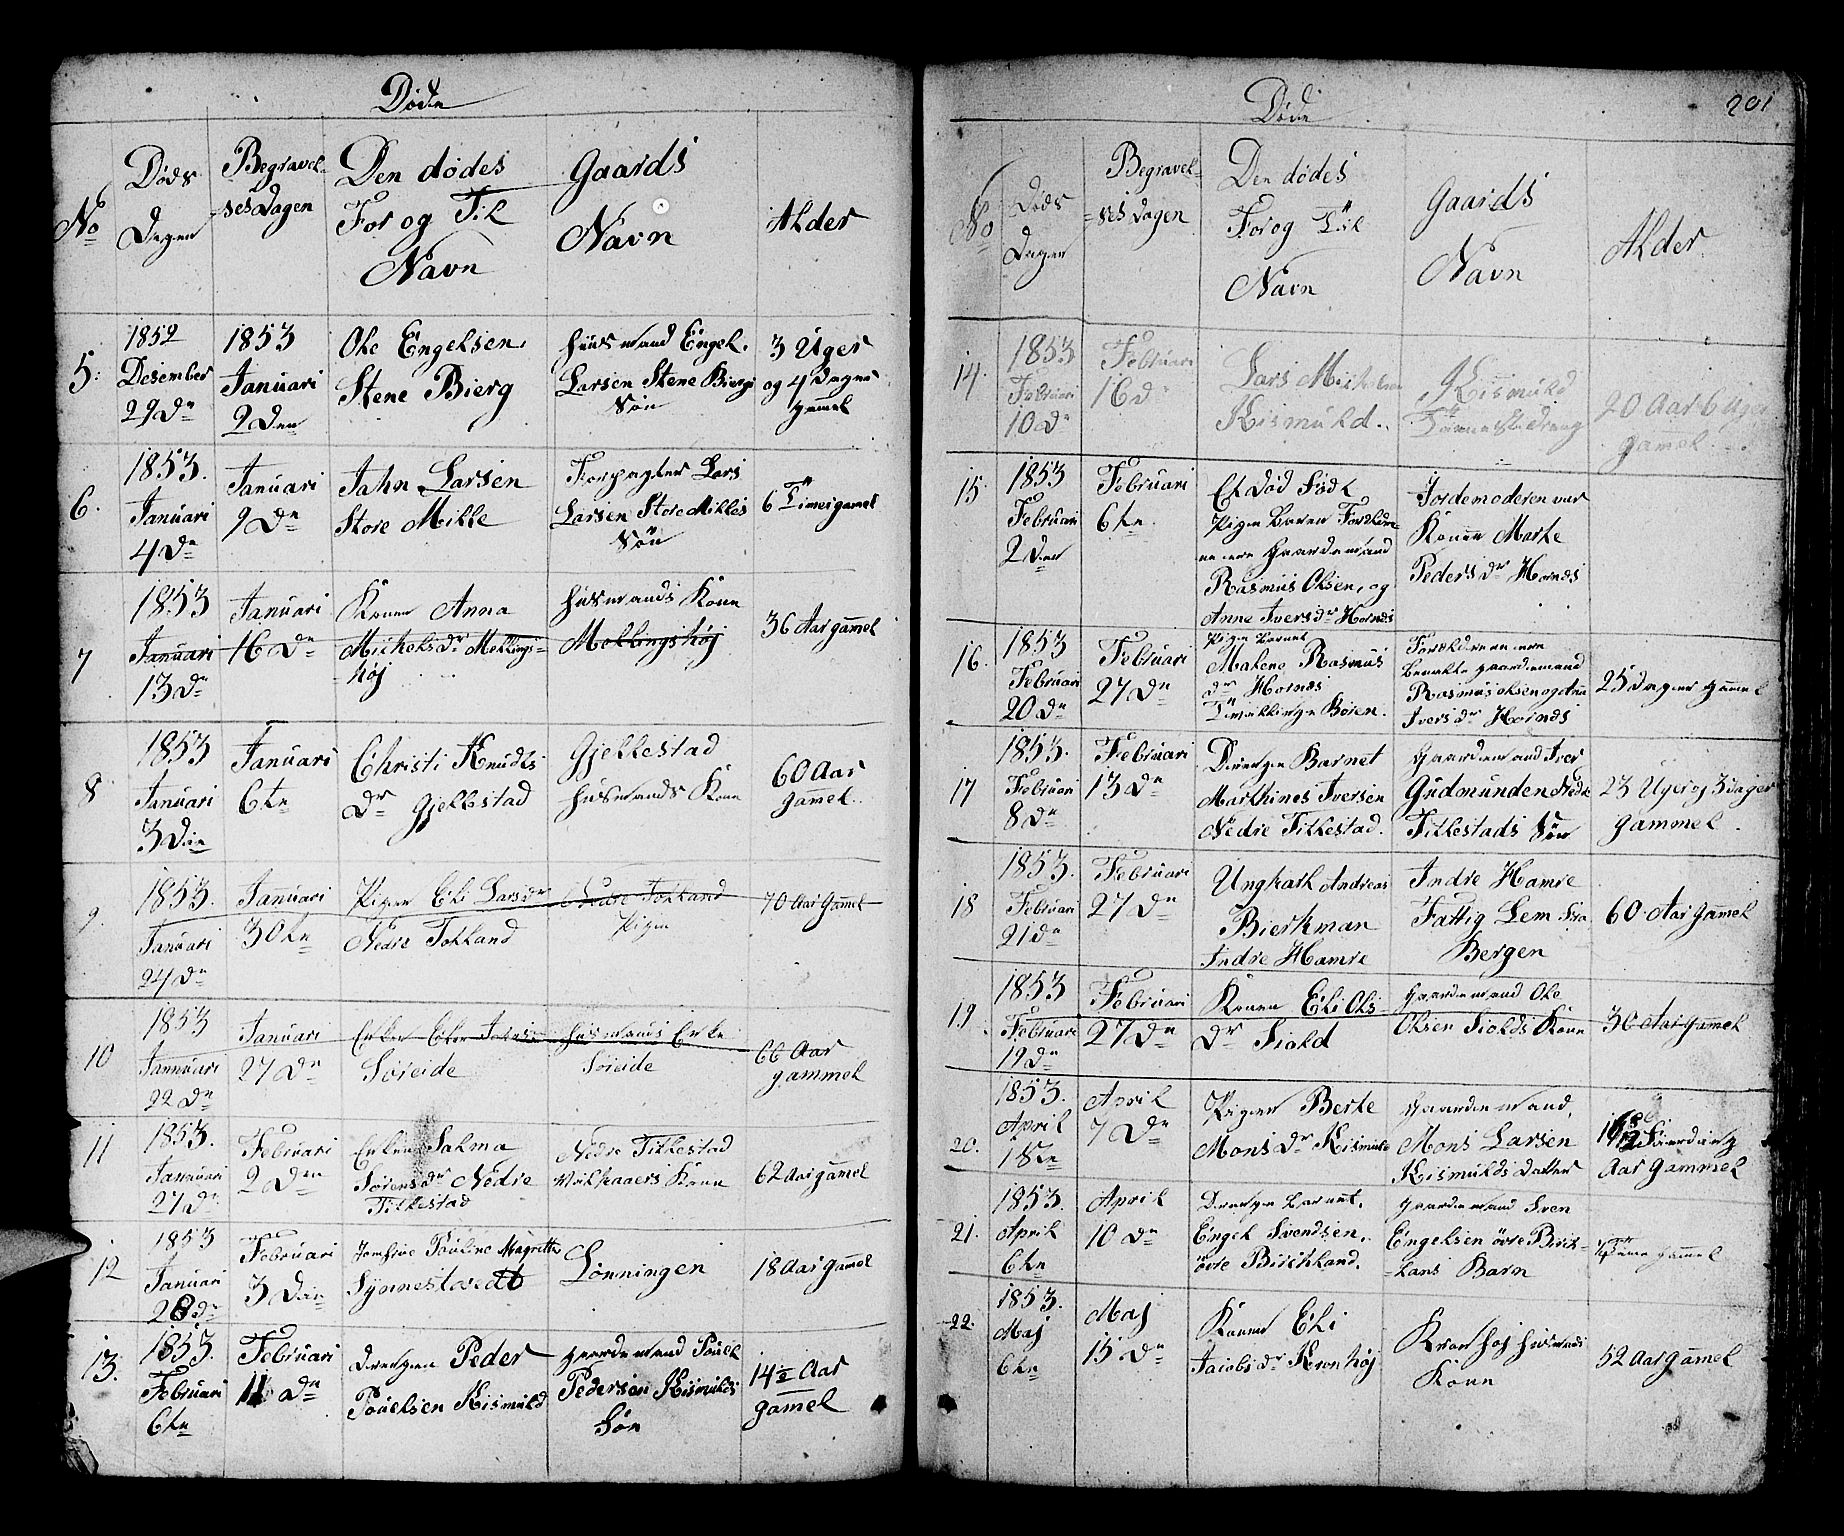 Døde
No
Døds
Dagen
Begravel-
sesDagen
Den dødes
For og Til
Navn
Gaards
Navn
Alder
5:
1852
Desember
29 Dn
1853
Januari
2 Den
Ole Engelsen.
Stene Bierg
Huusmand Engel.
Larsen Stene Biergs
Søn
3 Uger
og 4 Dages
gamel
6.
1853.
Januari
4 Dn
Januari
9 Dn
Jahn Larsen
Store Mille
Forpagter Lars
Larsen Store Milles
Søn
6 Timer gamel
7
1853
Januari
13 Dn
Januari
16 Dn
Konen Anna
Mickelsdr Mellings-
høj
Husmands Kone
Mellingshøj
36 Aar gammel
8
1853
Januari
3 Den
Januari
6te
Christi Knuds
Dr Gjellestad
Gjellestad
Husmands Kone
60 Aar
gamel.
9.
1853.
Januari
24 Dn
Januari
30te
Pigen Eli Larsdr
Nedre Tokland
Nedre Tokland
Pigen
70 Aar gamel
10
1853
Januari
22 Dn
Januari
27 Dn
Enken
Søreide
Husmands Enke
Søreide
66 Aar
gammel
11
1853.
Januari
27 Dn
Februari
2 Den
Enken Salma
Sørensdr Nedre
Titlestad
Nedre Titlestad
Kone
62 Aar gamel
12
1853
Januari
28 Dn
Februari
3 Den
Jomfrue Pouline Magrette
Synnestvedt
Lønningen
18 Aar gamel
13.
1853.
Februari
6te
Februari
11 Dn
Drengen Peder
Pouelsen Kismuld
Gaardemand Pouel
Pedersen Kismulds
Søn
14½ Aar
gamel
201
Døde
No
Døds
Dagen
Begravel-
ses Dagen
Den dødes
For og Til
Navn
Gaards
Navn
Alder
14.
1853
Februari
10 Dn
Februari
16 Dn
Lars
Kismuld.
Kismuld
20 Aar 6 Uger
gamel
15.
1853
Februari
2 Den
Februari
6te.
Et død Født
Pigen Barn Forelde-
ne ere Gaardemand
Rasmus Olsen, og
Anne Iversdr Hornes
Jordemoderen var
Konen Marte
Pedersdr Hornes
16.
1853
Februari
20 Dn
Februari
27 Dn
Pigen Barnet
Malene Rasmus
dr Hornes
Børen.
Forelderene ere
gaardemand
Rasmus Olsen og Anne
Iversdr Hornes
25 Dager gamel
17
1853.
Februari
8 Dn
Februari
13 Dn
Drengen Barnet
Marthines Iversen
Nedre Titlestad.
Gaardemand Iver
Gudmunden Nedre
Titlestads Søn
23 Uger og 3 Dager
gammel.
18
1853.
Februari
21 Dn
Februari
27 Dn
Ungkarl Andreas
Bierkman
Indre Hamre
Indre Hamre
Fattig Lem fra
Bergen
60 Aar gamel
19.
1853
Februari
19 Dn
Februari
27 Dn
Konen Eli Ols
Dr Siold
Gaardemand Ole
Olsen Siolds Kone
30 Aar gamel
20.
1853.
April
1ste
April
7 Dn
Pigen Berte
Monsdr Kismule
Gaardemand.
Mons Larsen
Kismulds Datter
Aar gammel
21.
1853.
April
6te
April
10 Dn
Drengen Barnet.
Engel Svendsen.
øvre Birchland.
Gaardemand Sven
Engelsen øvre Birk-
lans Barn
gammel
22.
1853.
Maj
6te
Maj
15 Dn
Konen Eli
Jacobsdr Kronhøj
Kronhøj Husmands
Kone
52 Aar gamel